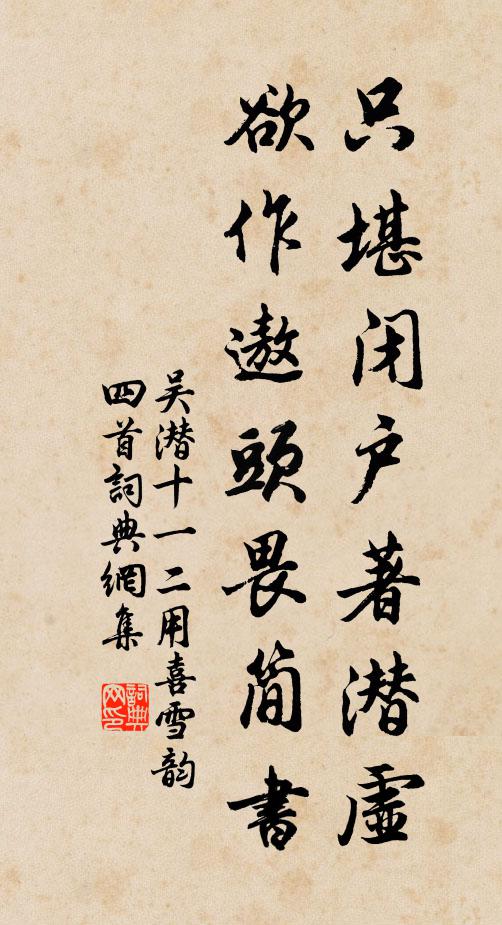 只堪闭户著潜虛
欲作遨頭畏简書
吴潜十一二用喜雪韵
四首詞典網集
詞典网印